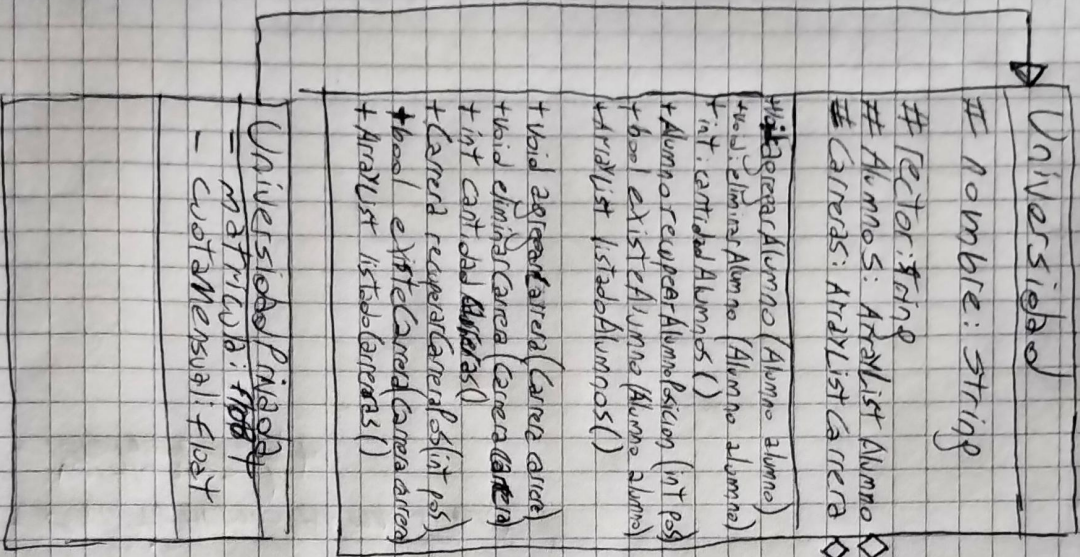 Universidad
# nombre: string
# rector: string
# Alumnos: ArrayList Alumno
# Carreras: ArrayList Carrera
+void agregarAlumno (Alumno alumno)
+void: eliminarAlumno (Alumno alumno)
+int: cantidadAlumnos()
+ Alumno recuperarAlumnoPosicion (int pos)
+ bool existeAlumno (Alumno alumno)
+ArrayList listadoAlumnos()
+ void agregarCarrera (Carrera carrera)
+void eliminarCarrera (Carrera carrera)
+ int cantidad Carreras()
+ Carrera recuperarCarreraPos(int pos)
+ bool existeCarrera(Carrera carrera)
+ ArrayList listadoCarreras()
Universidad Privada
- matricula: float
- cuotaMensual: float